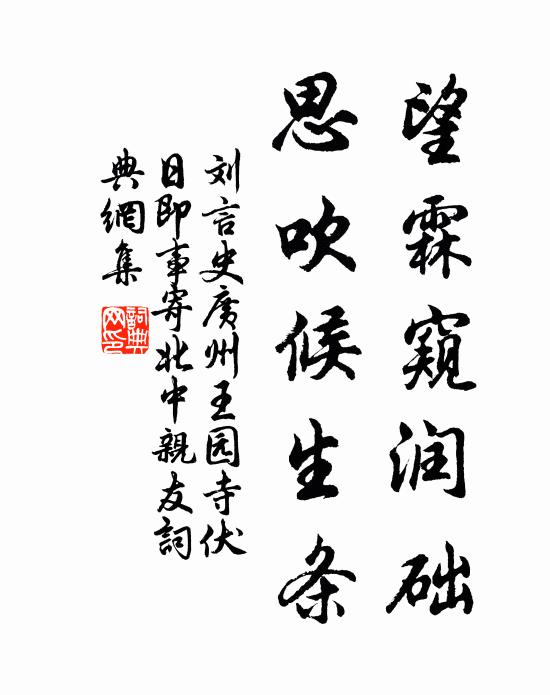 望霖窥润础
思吹候生条
刘言史廣州王园寺伏
日即事寄北中親友詞
典網集
詞典網印